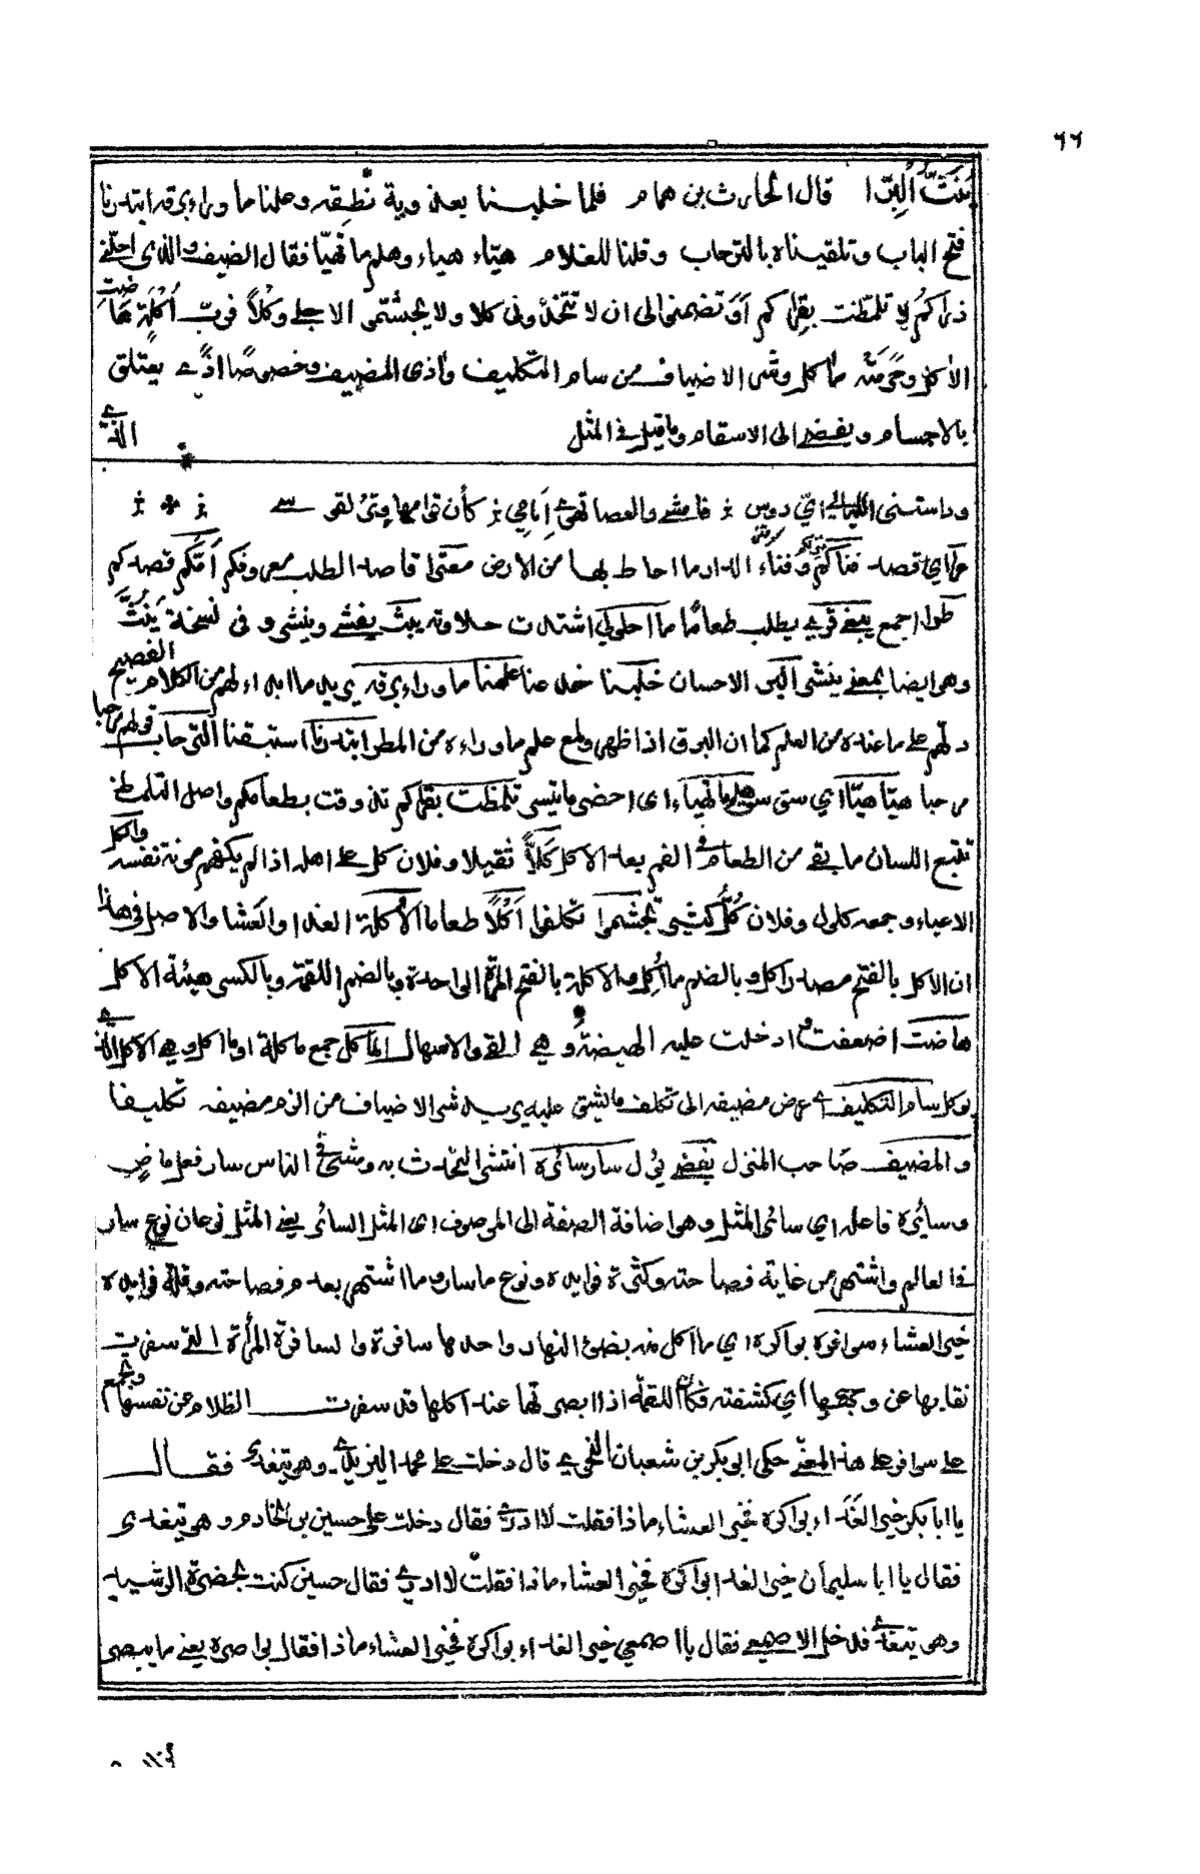 ٦٦
يَنُثُّ البِرّا قال الحارث بن همام فلما خلبنا بعذوبة نُطقه وعلمنا ما وراء برقه ابتدرنا
فتح الباب وتلقيناه بالترحاب وقلنا للغلام هيّاء هياء وهلم ما تهيّا فقال الضيف والذى احلّنى
ذراكم لا تلمّظت بقراكم أو تضمنوا لى ان لا تتخذونى كلا ولا تجشموا لاجلى أكلاً فربّ أكلة هاضت
الآكل وحرمته مآكل وشر الاضياف من سام التكليف وآذى المضيف وخصوصًا اذًى يعتلق
بالاجسام ويفضى الى الاسقام وما قيل فى المثل الذى
فمشى والعصا تهوى أمامى كأن قوامها وتر لقوس
عراى قصد فناكم وفناء الدار ما احاط بها من الارض معترا قاصد الطلب معروفكم أمّكم قصدكم
طوى اجمع يبغى قرى يطلب طعامًا ما احلولى اشتدت حلاوته يبث يفشى وينشر و فى نسخة يَنُثُّ
وهو ايضا بمعنى ينشر البر الاحسان خلبنا خدعنا علمنا ما وراء برقه يريد ما ابداء لهم من الكلام الفصيح
دلهم على ما عنده من العلم كما ان البرق اذا ظهر ولمع علم ما وراءه من المطر ابتدرنا استبقنا الترحاب قولهم مرحبا
مرحبا هيّا هيّا اي سق سق هلم ما تهياء اى احضر ما تيسر تلمظت بقراكم تذوقت بطعامكم واصل التلمظ
تتبع اللسان ما بقى من الطعام فى الفم بعد الاكل كَلًّا ثقيلا وفلان كل على اهله اذا لم يكفهم مونة نفسه والكل
الاعياء وجمعه كلول وفلان كُلٌّ كثير تجشموا تكلفوا أكلًا طعاما الأكلة الغدا والعشا والاصل فى هذا
ان الاكل بالفتح مصدر اكل وبالضم ما أكل والاكلة بالفتح المرة الواحدة وبالضم اللقمة وبالكسر هيئة الاكل
هاضت اضعفت او ادخلت عليه الهيضة وهي القى والاسهال المآكل جمع ماكلة او ما اكل وهى الاكل الذى
يوكل سام التكليف عرض مضيفه الى تكلف ما لشق عليه يريد شر الاضياف من الزم مضيفه تكليفا
والمضيف صاحب المنزل يفضى يؤل سار سائره انتشر التحدث به ومشى فى الناس سار فعل ماض
وسائره فاعله اي سائر المثل وهو اضافة الصفة الى الموصوف اى المثل السائر يعنى المثل نوعان نوع سار
فى العالم واشتهر من غاية فصاحته وكثرة فوايده ونوع ما سار وما اشتهر بعدم فصاحته وقلة فوايده
خير العشاء سوافره بواكره اي ما اكل منه بضوء النهار واحدها سافرة والسافرة المرأة التى سفرت
نقابها عن وجهها اي كشفته فكأن اللقمة اذا ابصرتها عند اكلها قد سفرت الظلام عن نفسها وتجمع
على سوافر على هذا المعنى حكى ابو بكر بن شعبان النحوى قال دخلت على محمد اليزيدي وهو يتغدى فقال
يا ابا بكر خير الغداء بواكره فخير العشاء ماذا فقلت لا ادرى فقال دخلت على حسين بن الخادم وهو يتغدى
فقال يا ابا سليمان خير الغداء بواكره فخير العشاء ماذا فقلت لا ادرى فقال حسين كنت بحضرة الرشيد
وهو يتغدى فدخل الاصمعى فقال يا اصمعي خير الغداء بواكره فخير العشاء ماذا فقال بواصره يعنى ما يبصر